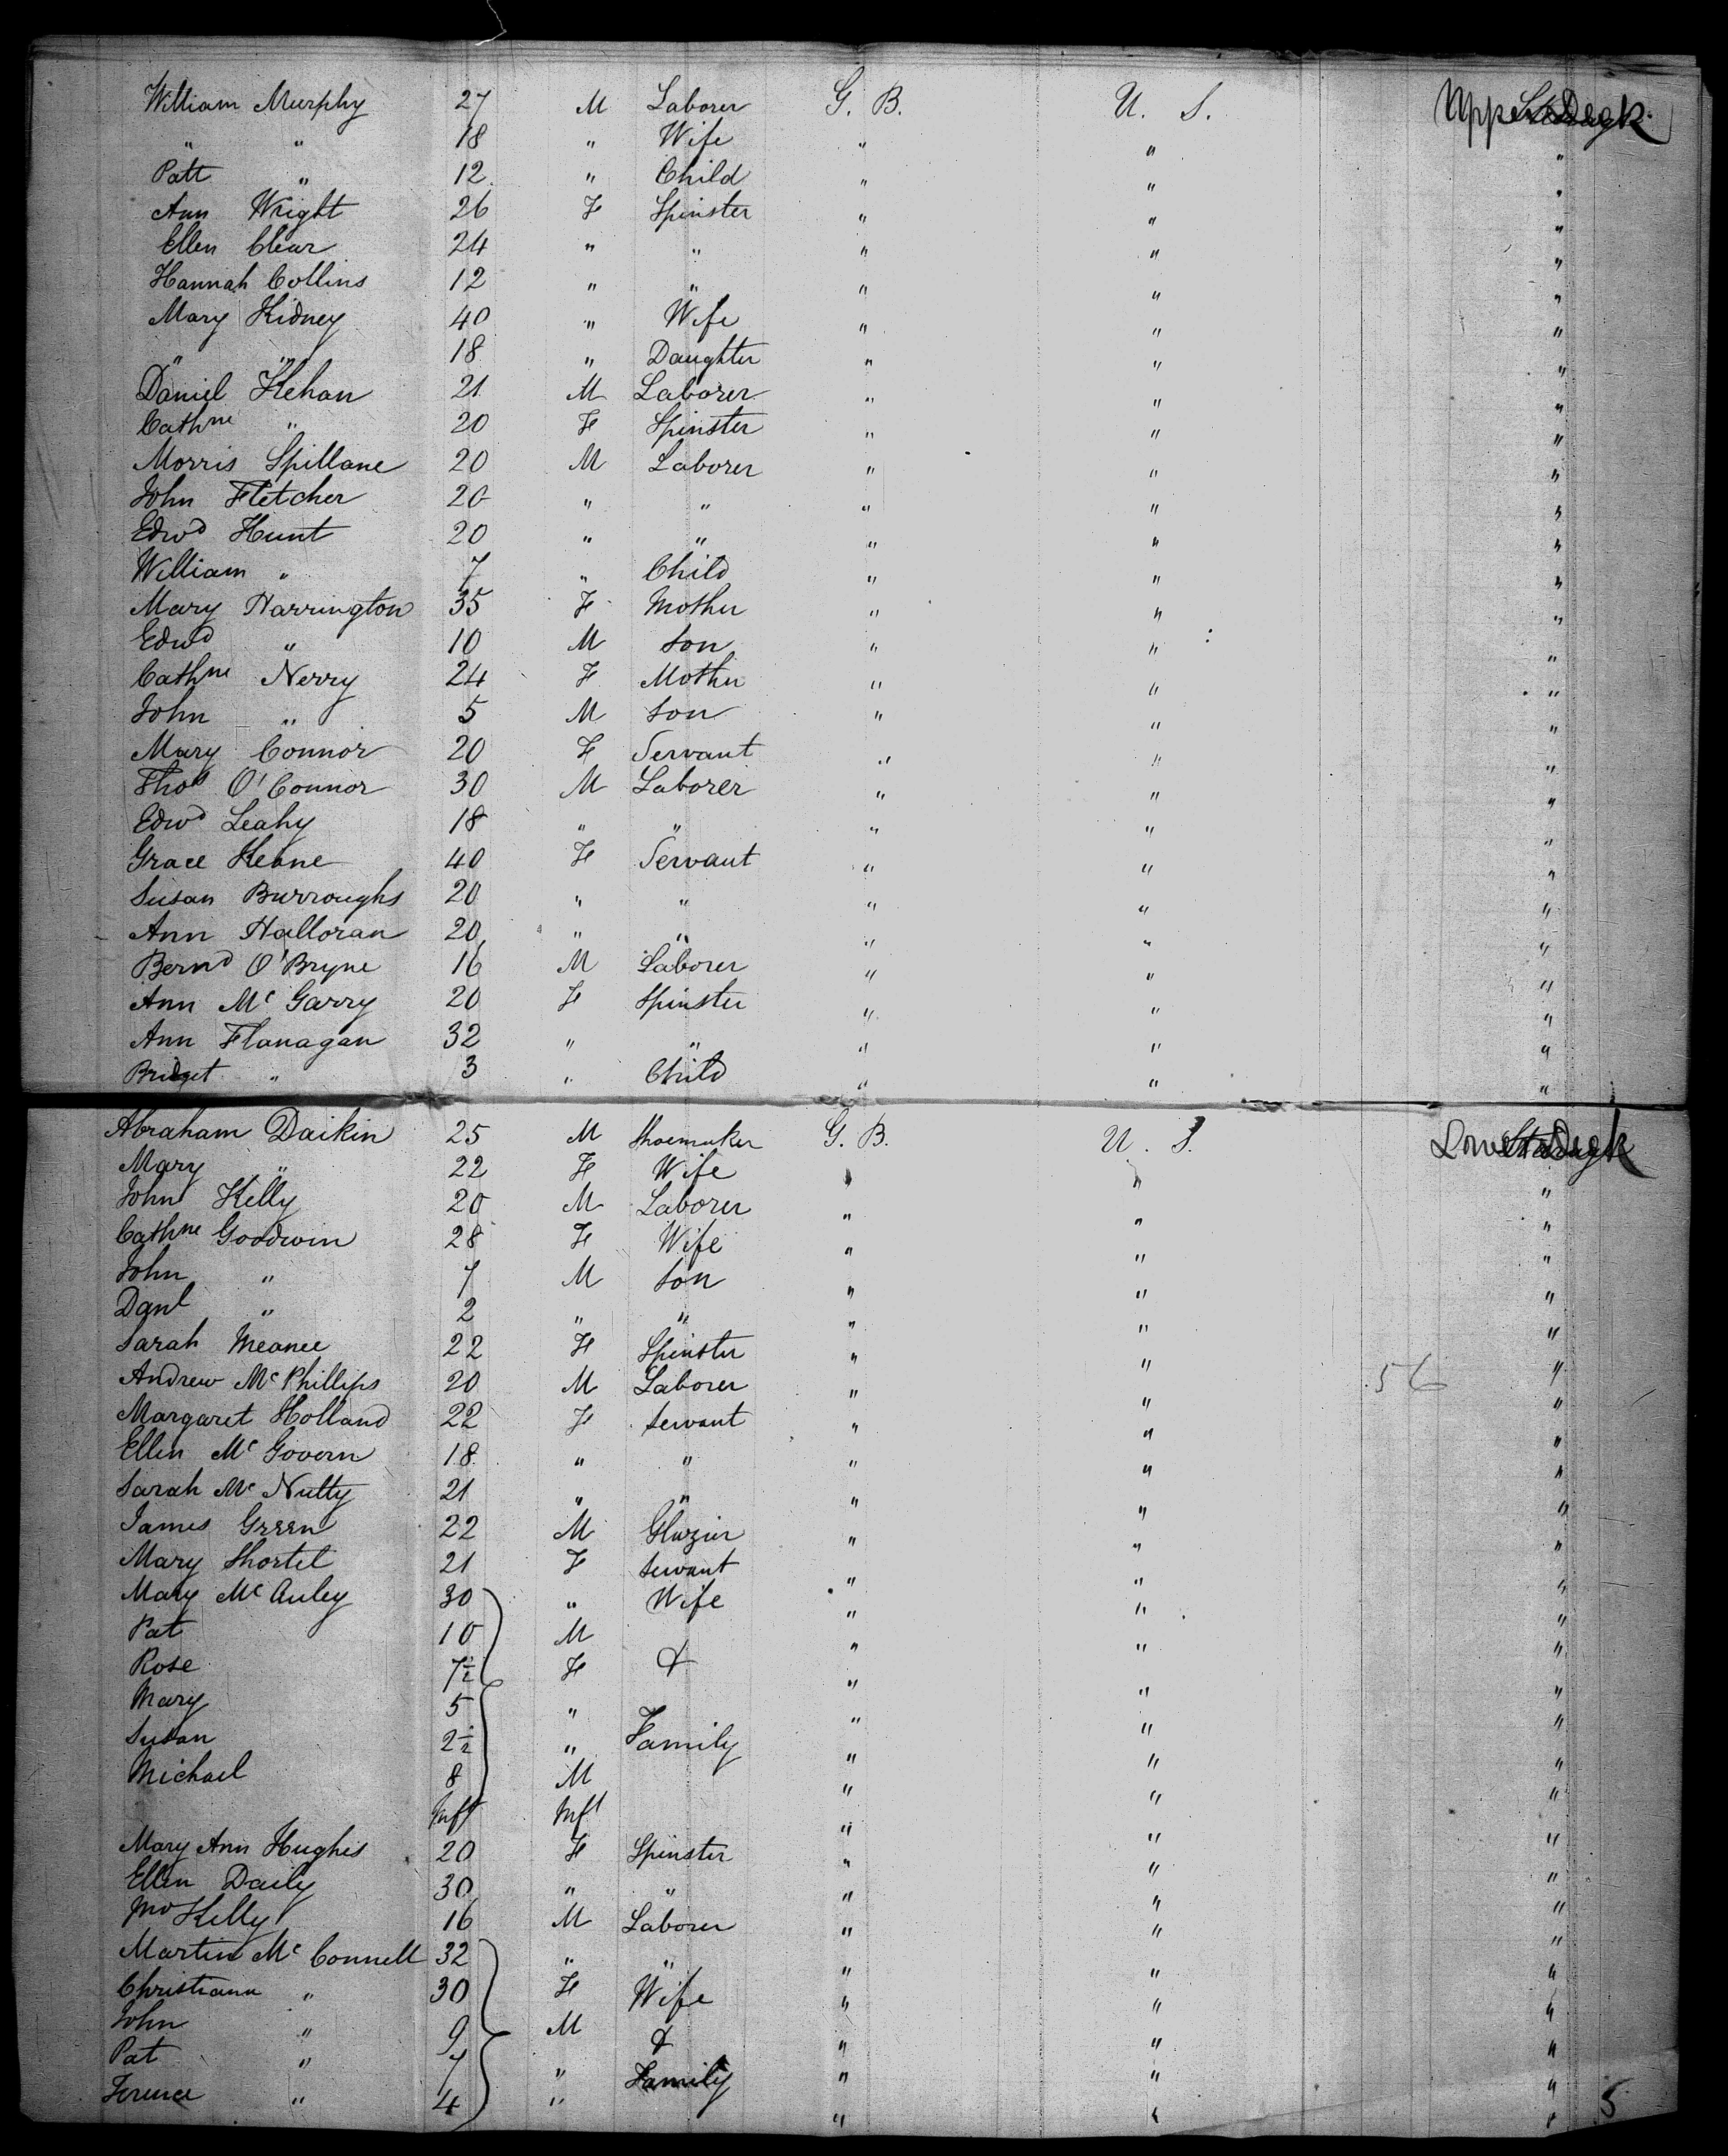 William Murphy 27 M Laborer G. B. U. S. Upper Deck
" " 18 " Wife " " "
Patt " 12 " Child " " "
Ann Wright 26 F Spinster " " "
Ellen Clear 24 " " " " "
Hannah Collins 12 " " " " "
Mary Kidney 40 " Wife " " "
" " 18 " Daughter " " "
Daniel Kehan 21 M Laborer " " "
Cathne " 20 F Spinster " " "
Morris Spillane 20 M Laborer " " "
John Fletcher 20 " " " " "
Edwd Hunt 20 " " " " "
William " 7 " Child " " "
Mary Harrington 35 F Mother " " "
Edwd " 10 M Son " " "
Cathne Nerry 24 F Mother " " "
John " 5 M Son " " "
Mary Connor 20 F Servant " " "
Thos O'Connor 30 M Laborer " " "
Edwd Leahy 18 " " " " "
Grace Keane 40 F Servant " " "
Susan Burroughs 20 " " " " "
Ann Halloran 20 " " " " "
Bernd O'Bryne 16 M Laborer " " "
Ann Mc Garry 20 F Spinster " " "
Ann Flanagan 32 " " " " "
Bridget " 3 " Child " " "
Abraham Daikin 25 M Shoemaker G. B. U. S. Lower Deck
Mary " 22 F Wife " " "
John Kelly 20 M Laborer " " "
Cathne Goodwin 28 F Wife " " "
John " 7 M Son " " "
Danl " 2 " " " " "
Sarah Meanee 22 F Spinster " " "
Andrew Mc Phillips 20 M Laborer " " 56 "
Margaret Holland 22 F Servant " " "
Ellen Mc Govern 18 " " " " "
Sarah Mc Nutty 21 " " " " "
James Green 22 M Glazier " " "
Mary Shortel 21 F Servant " " "
Mary Mc Auley 30 " Wife " " "
Pat 10 M " " "
Rose 7½ F & " " "
Mary 5 " " " "
Susan 2½ " Family " " "
Michael 8 M " " "
Inft Inft " " "
Mary Ann Hughes 20 F Spinster " " "
Ellen Daily 30 " " " " "
Jno Kelly 16 M Laborer " " "
Martin Mc Connell 32 " " " " "
Christiana " 30 F Wife " " "
John " 9 M & " " "
Pat " 7 " Family " " "
Terence " 4 " " " " 5